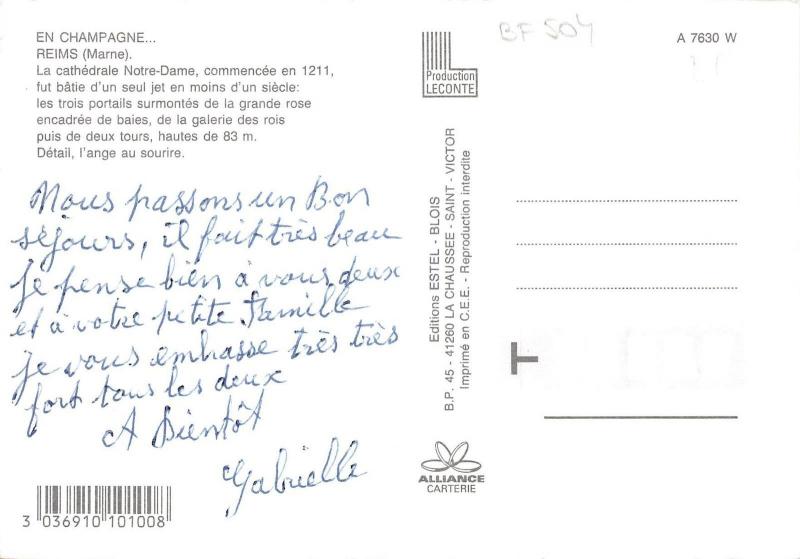 EN CHAMPAGNE...
REIMS (Marne).
La cathédrale Notre-Dame, commencée en 1211,
fut bâtie d'un seul jet en moins d'un siècle:
les trois portails surmontés de la grande rose
encadrée de baies, de la galerie des rois
puis de deux tours, hautes de 83 m.
Détail, l'ange au sourire.
Nous passons un Bon
séjours, il fait très beau
je pense bien à vous deux
et à votre petite famille
je vous embrasse très très
fort tous les deux
A Bientôt
Gabrielle
3 036910 101008
Production
LECONTE
BF 504
A 7630 W
Editions ESTEL - BLOIS
B.P. 45 - 41260 LA CHAUSSEE - SAINT - VICTOR
Imprimé en C.E.E. - Reproduction interdite
ALLIANCE
CARTERIE